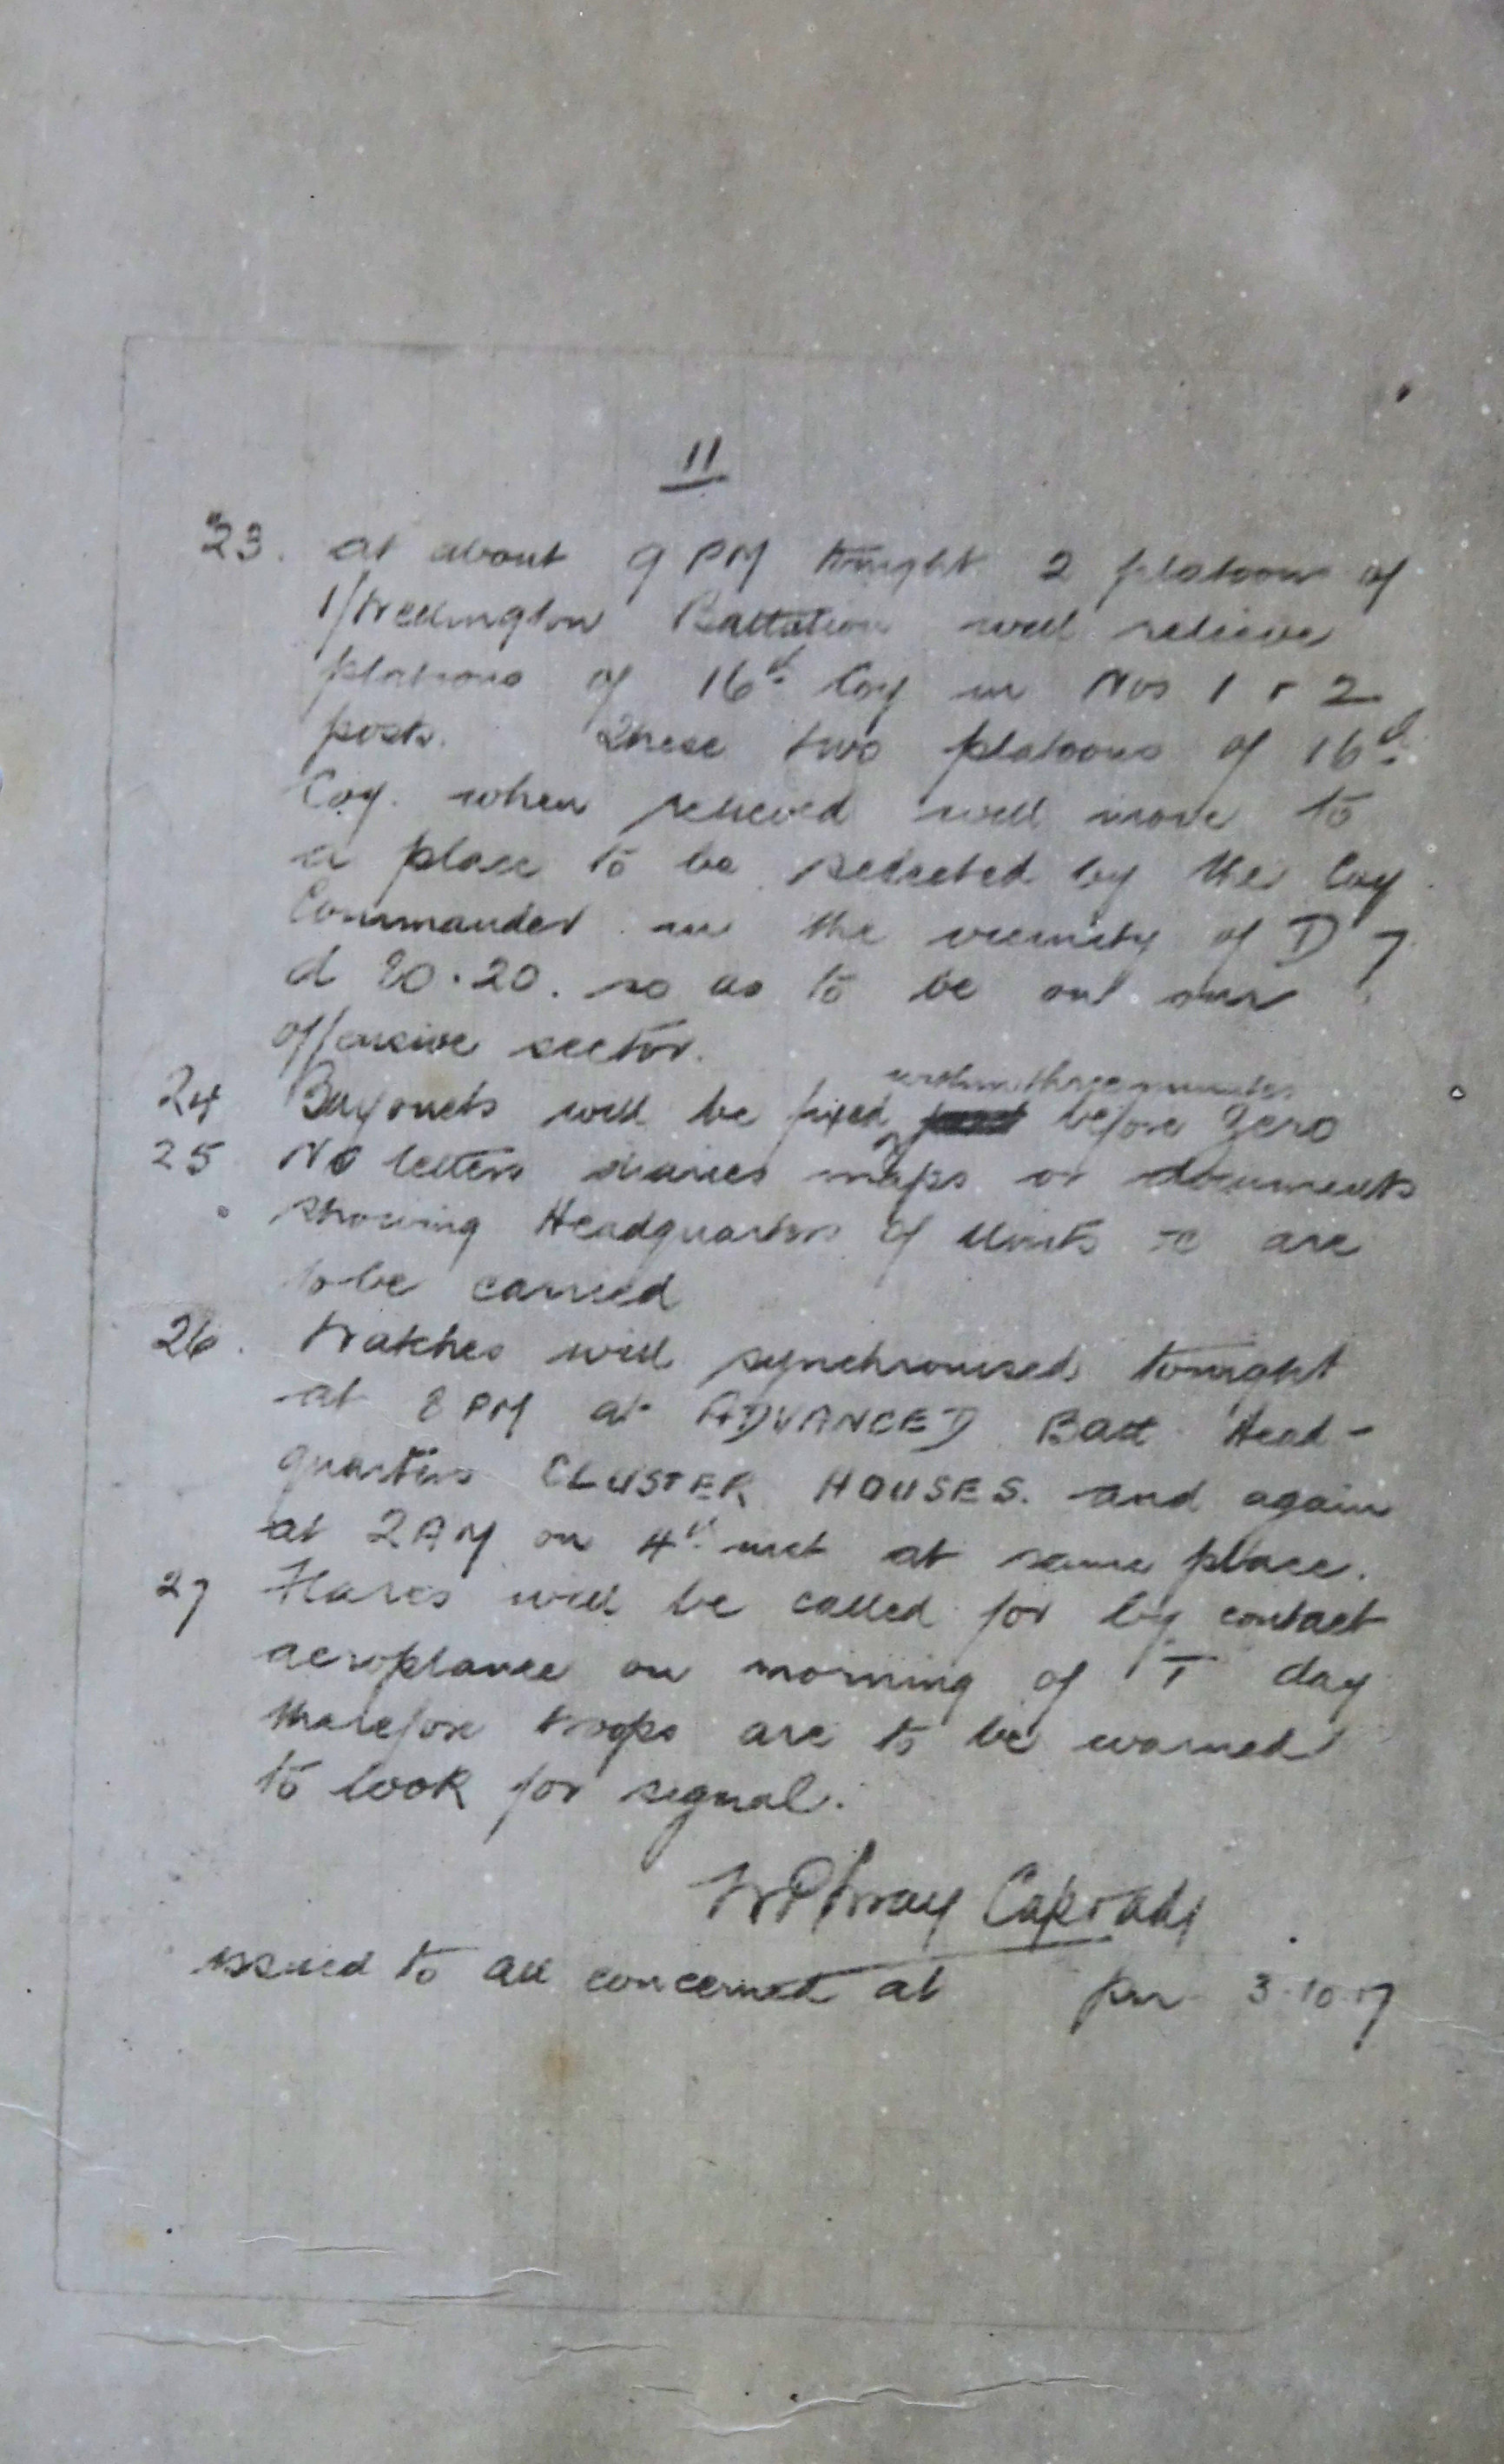 11
23. at about 9 PM tonight 2 platoons of
1/Wellington Battalion will relieve
platoons of 16th Coy in Nos 1 & 2
posts. These two platoons of 16th
Coy. when relieved will move to
a place to be selected by the Coy
Commander in the vicinity of D 7
d 80.20. so as to be out our
offensive sector.
within three minutes
24 Bayonets will be fixed before Zero
25 No letters diaries maps or documents
showing Headquarters of Units &c are
to be carried
26. Watches will synchronised tonight
at 8 PM at ADVANCED Batt Head-
quarters CLUSTER HOUSES. and again
at 2 AM on 4th inst at same place.
27 Flares will be called for by contact
aeroplane on morning of T day
therefore troops are to be warned
to look for signal.
Capt & Adj
issued to all concerned at pm 3.10.17